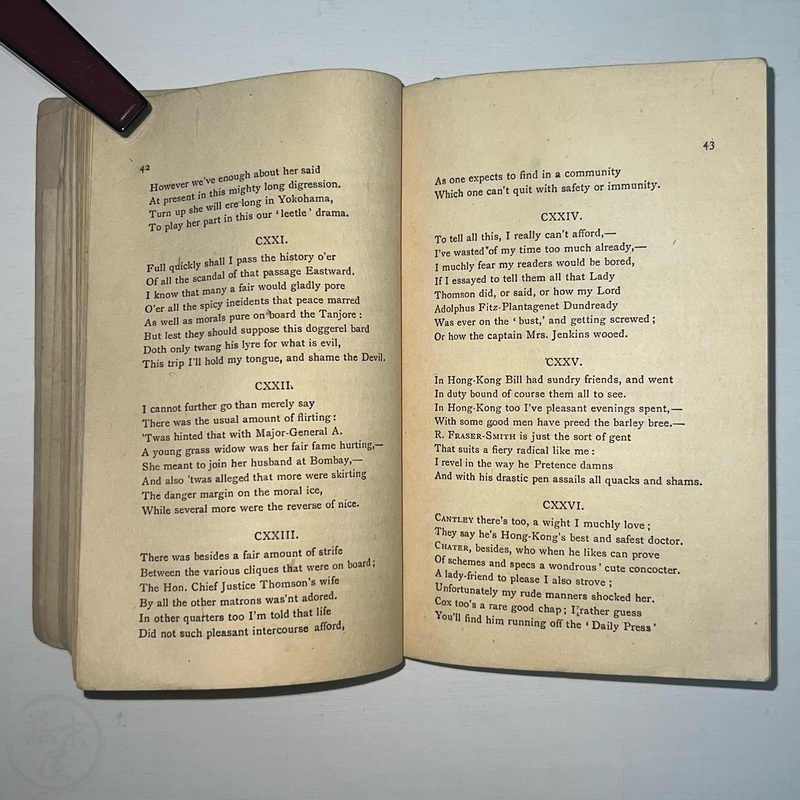 42
However we've enough about her said
At present in this mighty long digression.
Turn up she will ere long in Yokohama,
To play her part in this our 'leetle' drama.
CXXI.
Full quickly shall I pass the history o'er
Of all the scandal of that passage Eastward.
I know that many a fair would gladly pore
O'er all the spicy incidents that peace marred
As well as morals pure on board the Tanjore :
But lest they should suppose this doggerel bard
Doth only twang his lyre for what is evil,
This trip I'll hold my tongue, and shame the Devil.
CXXII.
I cannot further go than merely say
There was the usual amount of flirting :
'Twas hinted that with Major-General A.
A young grass widow was her fair fame hurting,—
She meant to join her husband at Bombay,—
And also 'twas alleged that more were skirting
The danger margin on the moral ice,
While several more were the reverse of nice.
CXXIII.
There was besides a fair amount of strife
Between the various cliques that were on board ;
The Hon. Chief Justice Thomson's wife
By all the other matrons was'nt adored.
In other quarters too I'm told that life
Did not such pleasant intercourse afford,
43
As one expects to find in a community
Which one can't quit with safety or immunity.
CXXIV.
To tell all this, I really can't afford,—
I've wasted of my time too much already,—
I muchly fear my readers would be bored,
If I essayed to tell them all that Lady
Thomson did, or said, or how my Lord
Adolphus Fitz-Plantagenet Dundready
Was ever on the 'bust,' and getting screwed ;
Or how the captain Mrs. Jenkins wooed.
CXXV.
In Hong-Kong Bill had sundry friends, and went
In duty bound of course them all to see.
In Hong-Kong too I've pleasant evenings spent,—
With some good men have preed the barley bree.—
R. FRASER-SMITH is just the sort of gent
That suits a fiery radical like me :
I revel in the way he Pretence damns
And with his drastic pen assails all quacks and shams.
CXXVI.
CANTLEY there's too, a wight I muchly love ;
They say he's Hong-Kong's best and safest doctor.
CHATER, besides, who when he likes can prove
Of schemes and specs a wondrous' cute concocter.
A lady-friend to please I also strove ;
Unfortunately my rude manners shocked her.
Cox too's a rare good chap ; I rather guess
You'll find him running off the 'Daily Press'